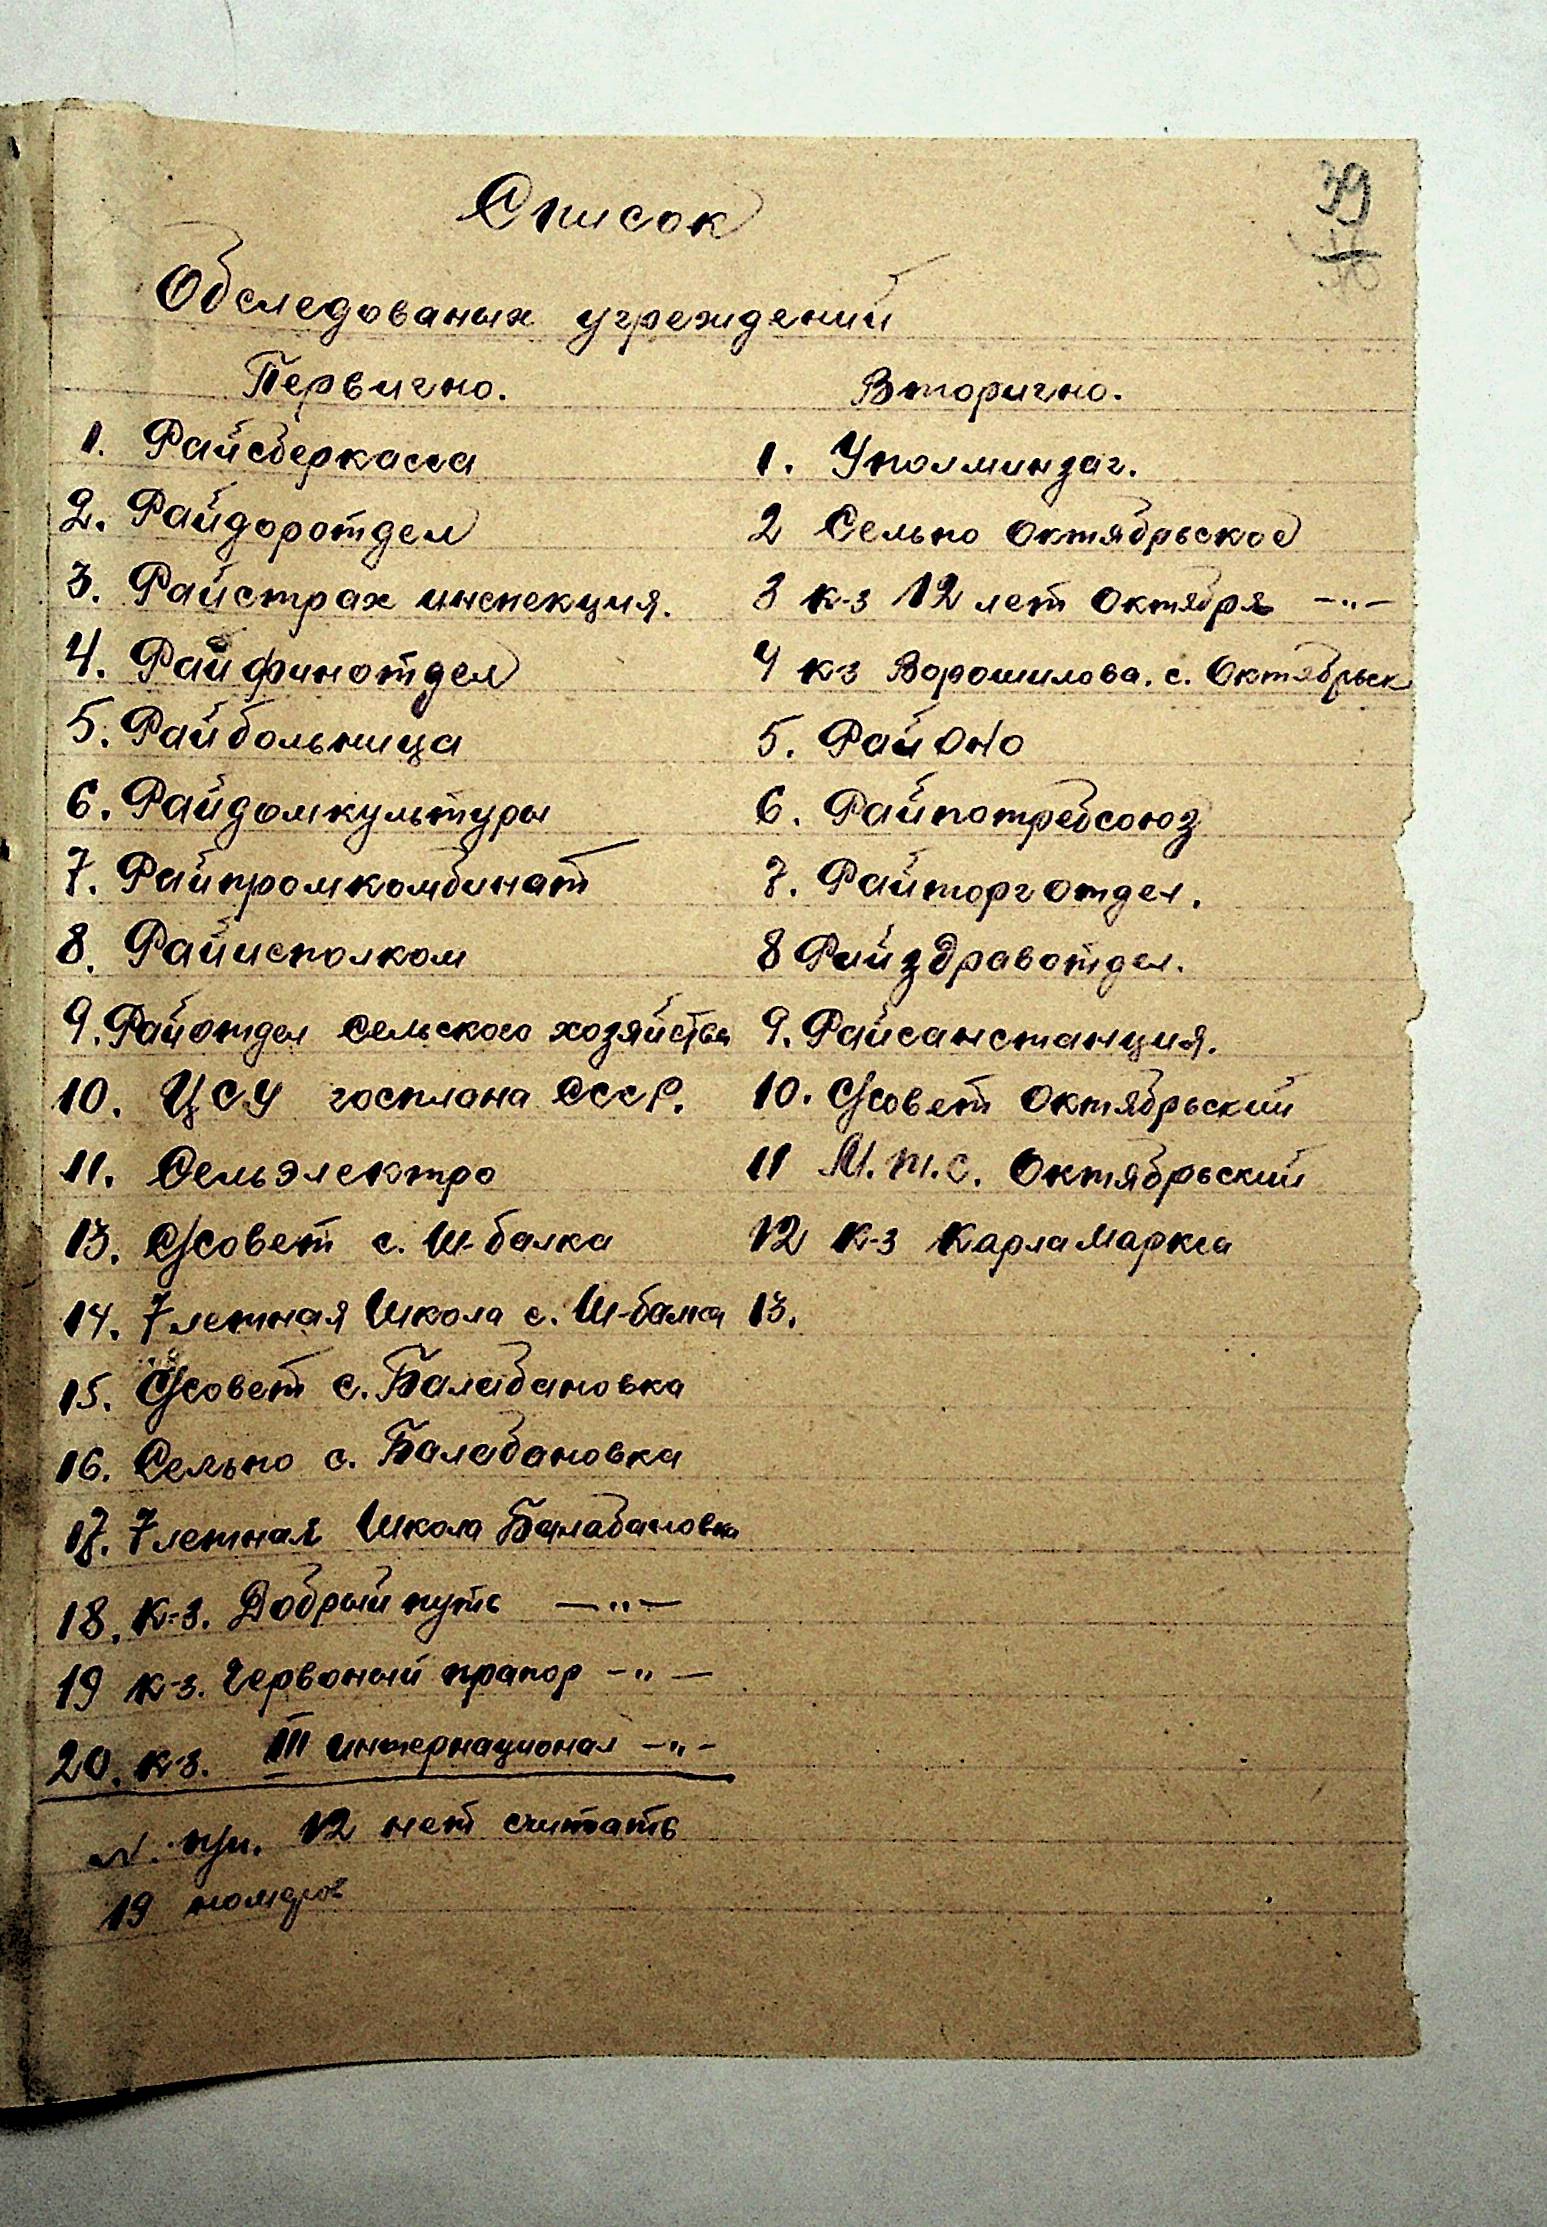 39
Список
Обследованых учреждений
Первично.
1. Райсберкасса
2. Райдоротдел
3. Райстрах инспекция.
4. Райфинотдел
5. Райбольница
6. Райдомкультуры
7. Райпромкомбинат
8. Райисполком
9. Райотдел сельского хозяйства
10. ЦСУ госплана СССР.
11. Сельэлектро
13. С/совет с. Ш-балка
14. 7 летная школа с. Ш-балка
15. С/совет с. Балабановка
16. Сельпо с. Балабановка
17. 7 летная школа Балабановка
18. К-з. Добрый путь —"—
19 к-з. Червоный прапор —"—
20. к-з. III интернационал —"—
N. пр. 12 нет считать
19 номеров
Вторично.
1. Уполминзаг.
2 Сельпо Октябрьское
3 к-з 12 лет Октября —"—
4 к-з Ворошилова. с. Октябрьск
5. РайОНО
6. Райпотребсоюз
7. Райторготдел.
8 Райздравотдел.
9. Райсанстанция.
10. С/совет Октябрьский
11 М.т.с. Октябрьский
12 К-з Карла Маркса
13.